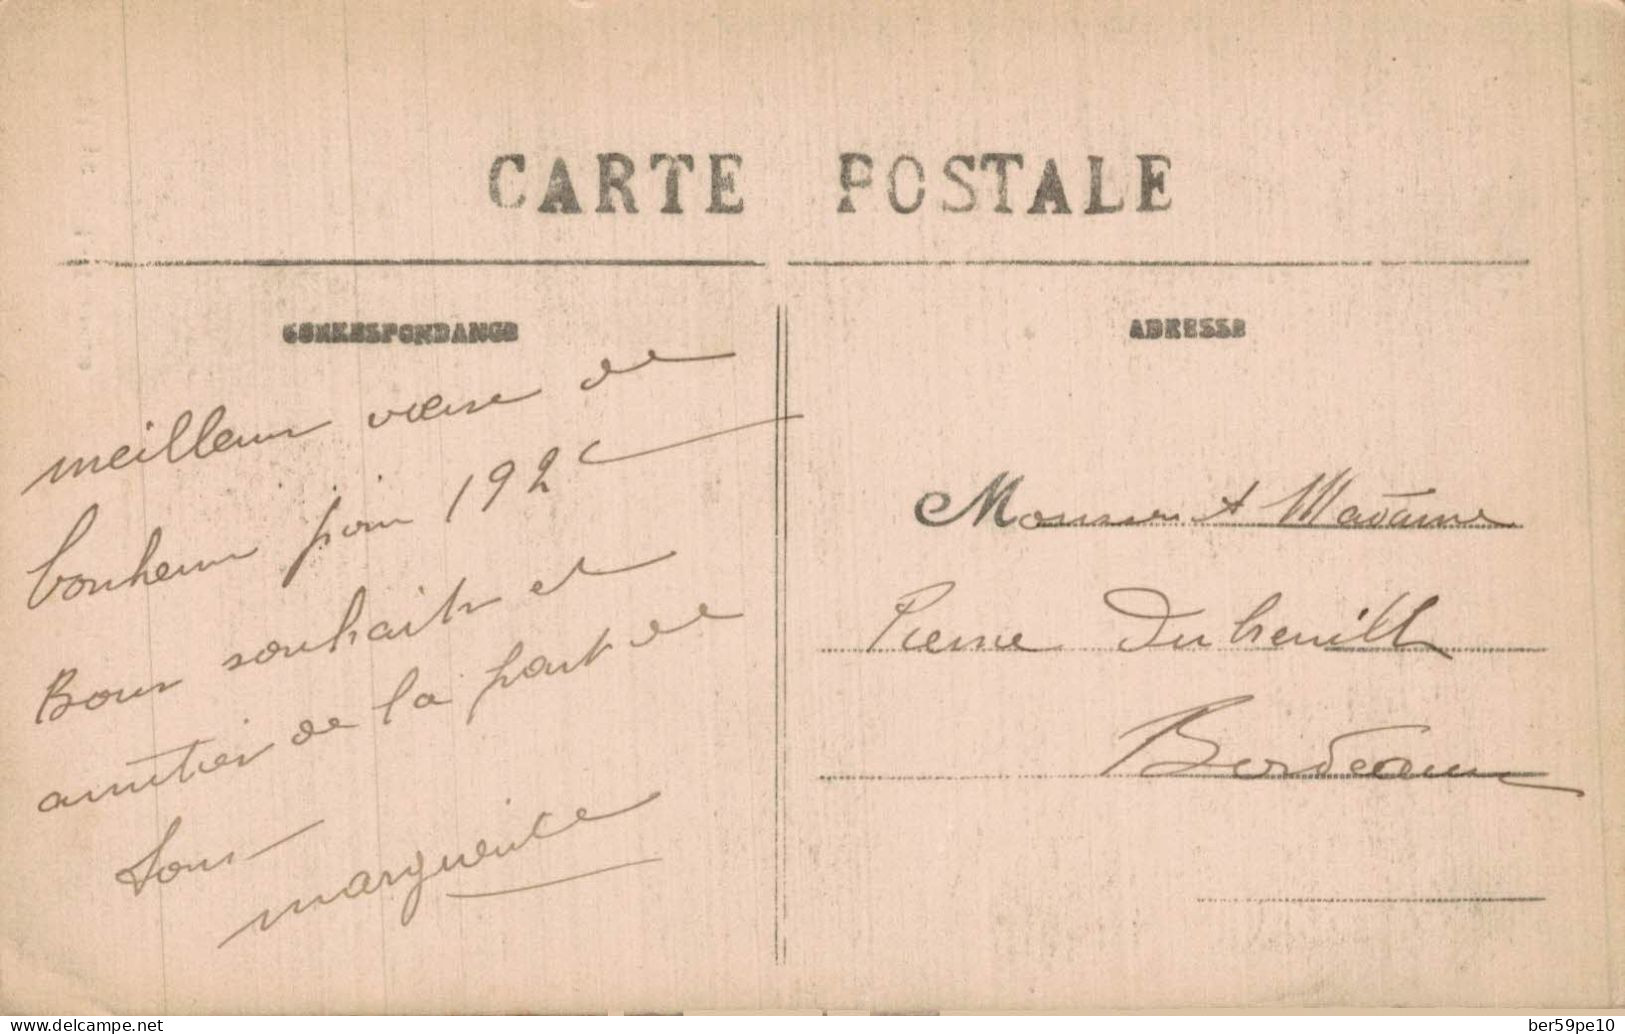 CARTE POSTALE
CORRESPONDANCE
ADRESSE
meilleur vœux de
bonheur pour 192
Bons souhaits et
amitiés de la part de
tous
marguerite
Monsieur et Madame
Pierre
Bordeaux
www.delcampe.net
ber59pe10